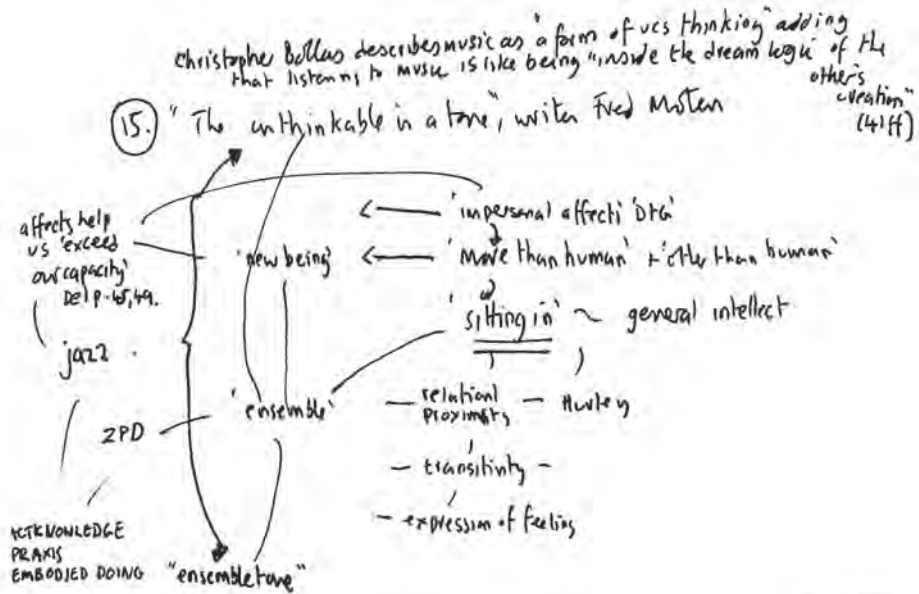 Christopher Bollas describes music as "a form of ucs thinking" adding
that listening to music is like being "inside the dream logic of the
other's
creation"
(41ff)
15. "The unthinkable is a tone", writes Fred Moten
affects help
us 'exceed
our capacity'
p. 45, 49.
'impersonal affect' D+G'
'new being'
'more than human' + 'other than human'
'sitting in' ~ general intellect
jazz
'ensemble'
- relational
proximity - Hurley
ZPD
- transitivity -
- expression of feeling
KNOWLEDGE
PRAXIS
EMBODIED DOING
"ensemble tone"